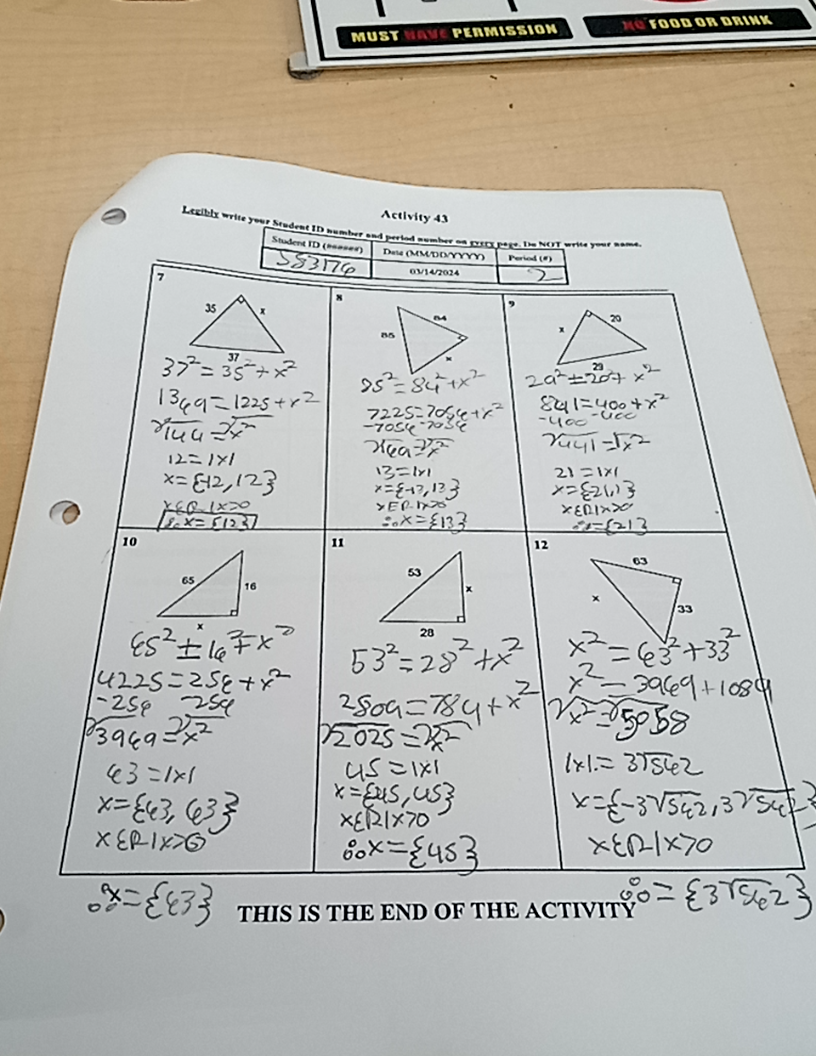 MUST HAVE PERMISSION
NO FOOD OR DRINK
Activity 43
Legibly write your Student ID number and period number on every page. Do NOT write your name.
Student ID (######) Date (MM/DD/YYYY) Period (#)
583176 03/14/2024 2
7
35 x
37
37² = 35² + x²
1369 = 1225 + x²
√144 = √x²
12 = |x|
x = {-12, 12}
x∈R | x>0
∴ x = {12}
8
84
85
x
85² = 84² + x²
7225 = 7056 + x²
-7056 -7056
√169 = √x²
13 = |x|
x = {-13, 13}
x∈R | x>0
∴ x = {13}
9
20
x
29
29² = 20² + x²
841 = 400 + x²
-400 -400
√441 = √x²
21 = |x|
x∈R | x>0
∴ = {21}
10
65 16
x
65² = 16² + x²
4225 = 256 + x²
-256 -256
√3969 = √x²
63 = |x|
x = {63, 63}
x∈R | x>0
∴ x = {63}
11
53 x
28
53² = 28² + x²
2809 = 784 + x²
√2025 = √x²
45 = |x|
x = {45, 45}
x∈R | x>0
∴ x = {45}
12
63
x
33
x² = 63² + 33²
x² = 3969 + 1089
√x² = √5058
|x| = 3√562
x = {-3√562, 3√562}
x∈R | x>0
∴ = {3√562}
THIS IS THE END OF THE ACTIVITY